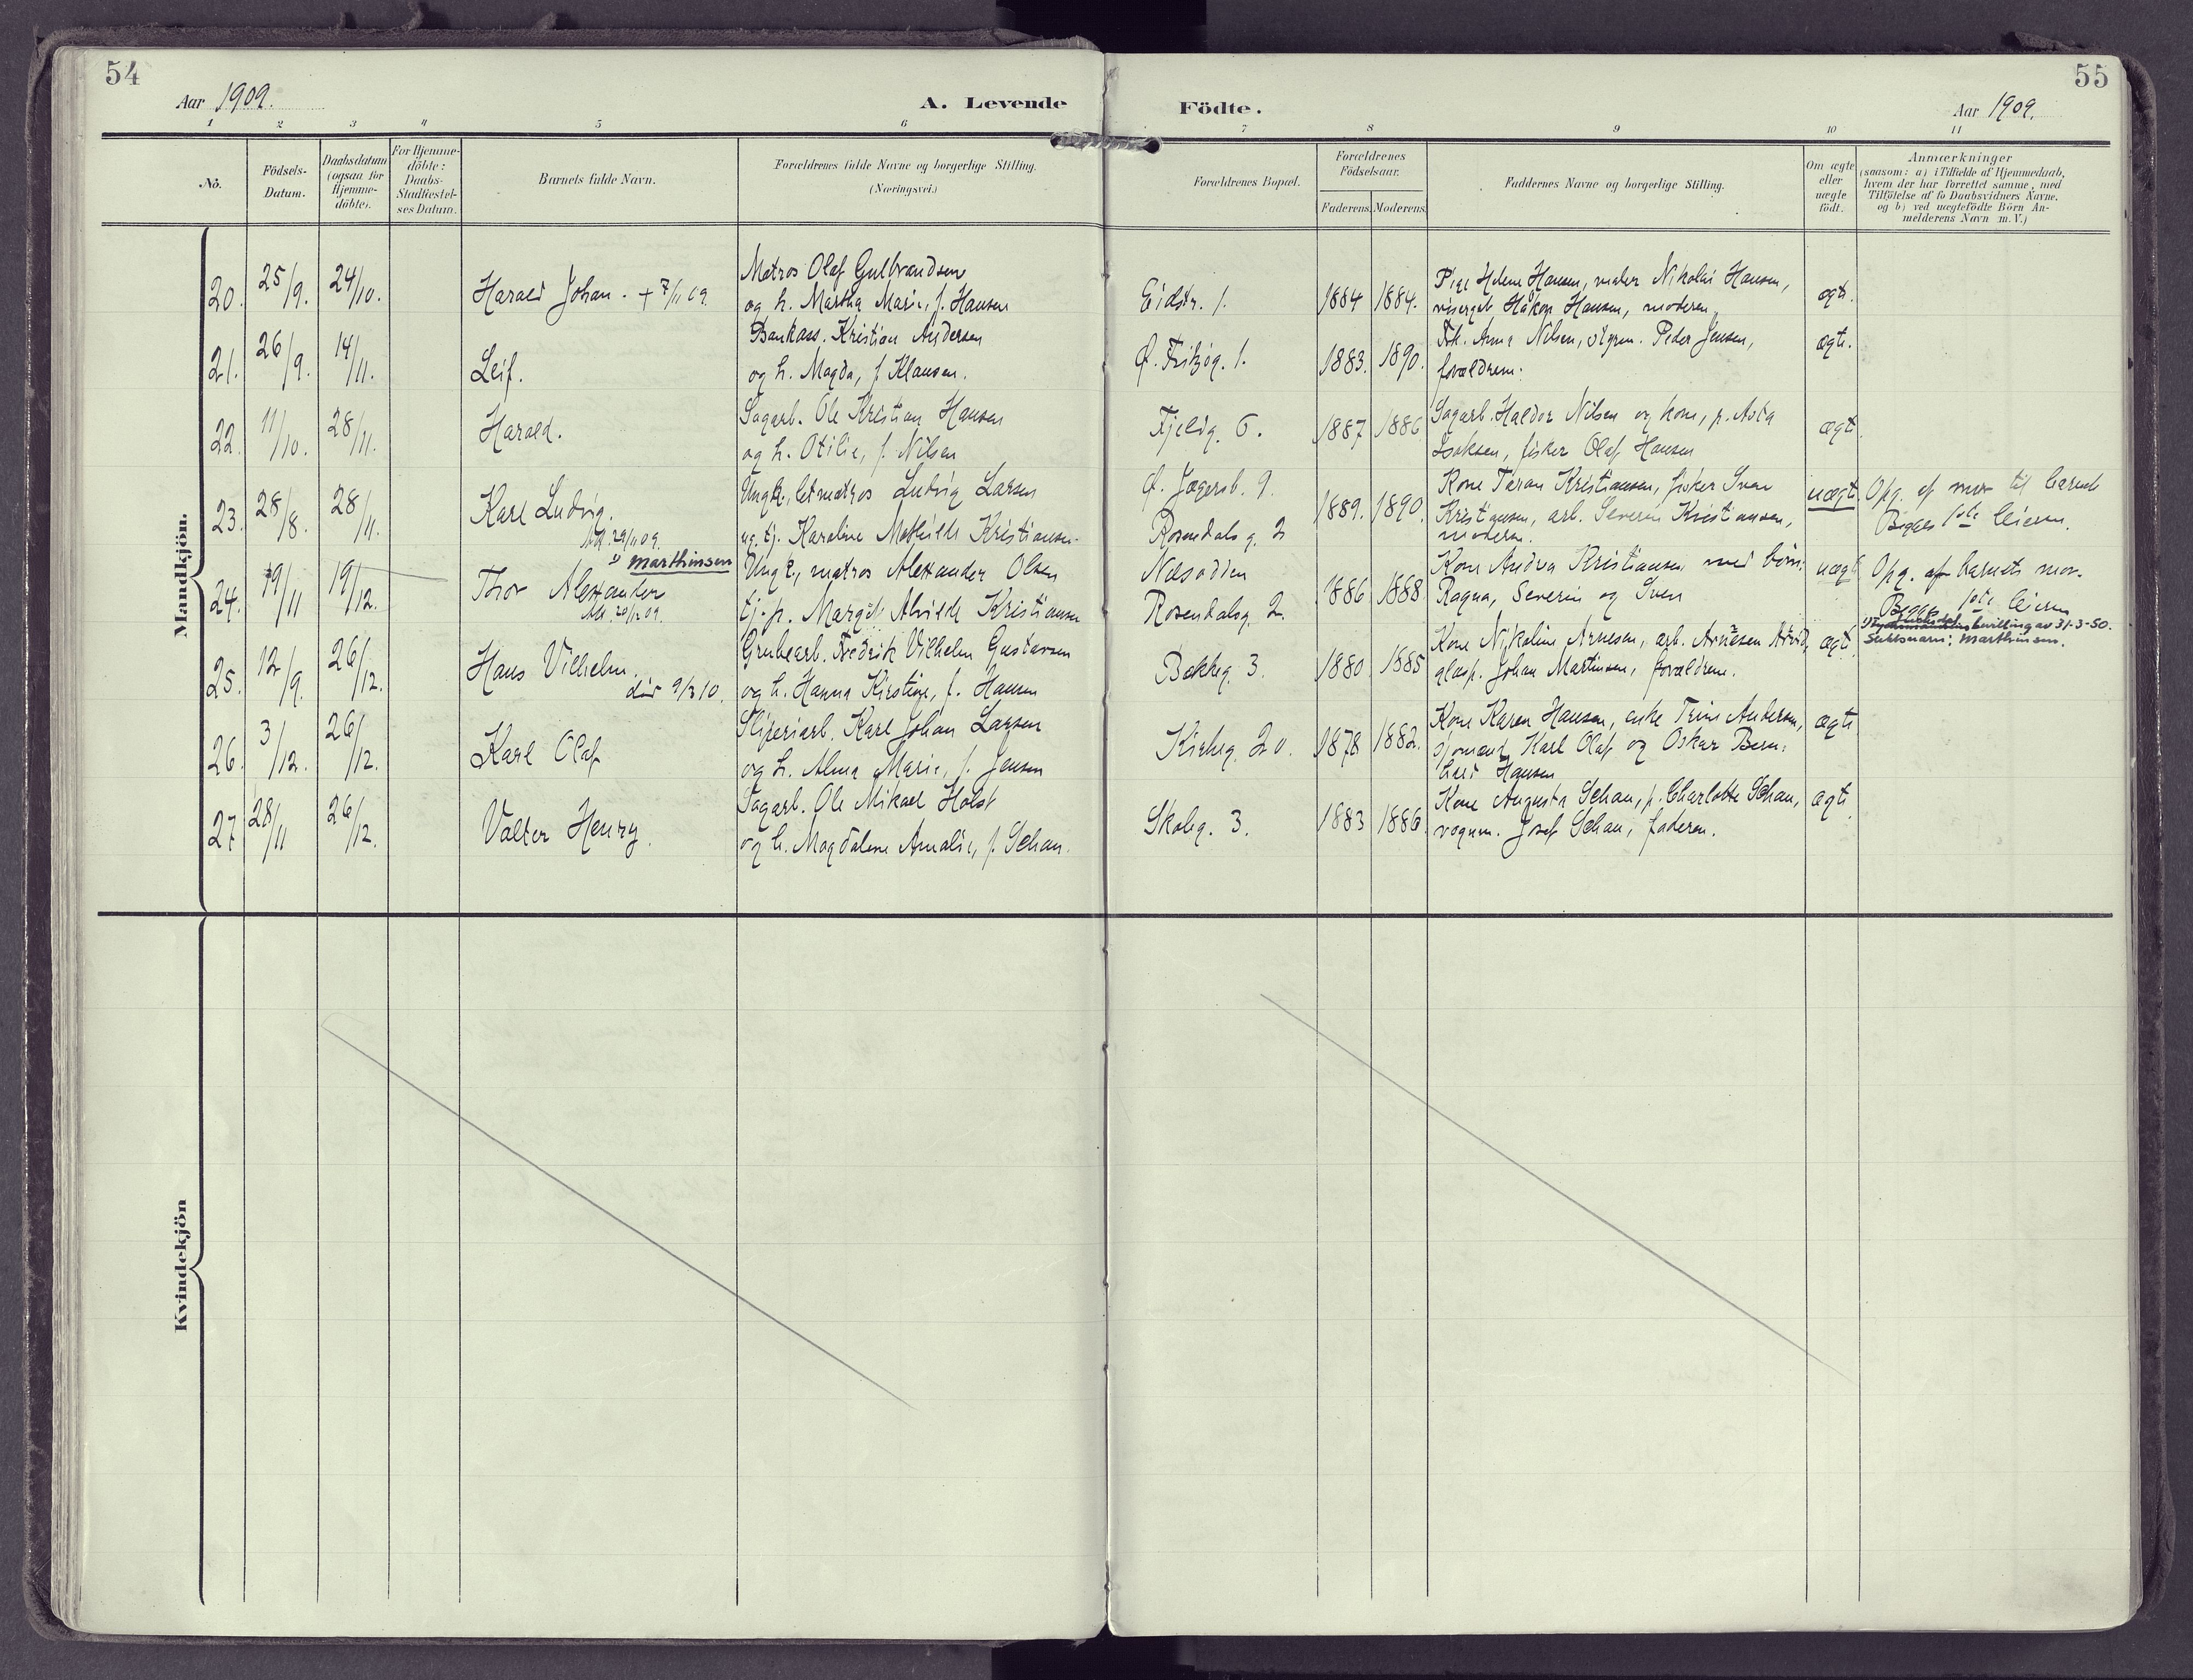 54
55
Aar 1909.
A. Levende
Födte.
Aar 1909.
1 2 3 4 5 6 7 8 9 10 11
No.
Födsels-
Datum.
Daabsdatum
(ogsaa for
Hjemme-
döbte).
For Hjemme-
döbte:
Daabs-
Stadfæstel-
ses Datum.
Barnets fulde Navn.
Forældrenes fulde Navne og borgerlige Stilling.
(Næringsvei.)
Forældrenes Bopæl.
Forældrenes
Födselsaar.
Faderens. Moderens.
Faddernes Navne og borgerlige Stilling.
Om ægte
eller
uægte
födt.
Anmærkninger
(saasom: a) i Tilfælde af Hjemmedaab,
hvem der har forrettet samme, med
Tilföielse af to Daabsvidners Navne,
og b) ved uægtefödte Börn An-
melderens Navn m. V.)
Mandkjön.
20. 25/9. 24/10. Harald Johan. + 7/11 09.
Matros Olaf Gulbrandsen
og h. Martha Marie, f. Hansen
Eidstr. 1. 1884 1884.
Pige Helene Hansen, maler Nikolai Hansen,
visergut Håkon Hansen, moderen
ægte.
21. 26/9. 14/11. Leif.
Bankass. Kristian Andersen
og h. Magda, f. Klausen.
Fritzög. 1. 1883. 1890.
Frk. Anna Nilsen, Peder Jensen,
forældrene.
ægte.
22. 11/10. 28/11. Harald.
Sagarb. Ole Kristian Hansen
og h. Otilie, f. Nilsen
Fjeldg. 6. 1887 1886
Sagarb. Haldor Nilsen og kone, p. Asta
Isaksen, fisker Olaf Hansen
ægte
23. 28/8. 28/11. Karl Ludvig.
29/11 09.
Ungk., letmatros Ludvig Larsen
ug. tj. Karoline Mathilde Kristiansen
Jægersb. 9.
Rosendalsg. 2
1889. 1890.
Kone Taran Kristiansen, fisker Sven
Kristiansen, arb. Severin Kristiansen,
moderen.
uægte
Opg. af mor til barnet
Begges 1ste leierm.
24. 19/11 19/12. Thor Alexander
1) Marthinsen
20/12 09.
Ungk., matros Alexander Olsen
tj. p. Margit Alvilde Kristiansen
Næsodden
Rosendalsg. 2.
1886 1888
Kone Andrea Kristiansen med börn:
Ragna, Severin og Sven
uægte
Opg. af barnets mor.
Begges 1ste leierm
bevilling av 31-3-50.
Slektsnavn: Marthinsen.
25. 12/9. 26/12. Hans Vilhelm.
död 9/3 10.
Grubearb. Fredrik Vilhelm Gustavsen
og h. Hanna Kirstine, f. Hansen
Bakkeg. 3. 1880 1885
Kone Nikoline Arnesen, arb. Arnesen Arvid,
glasp. Johan Martinsen, forældrene.
ægte
26. 3/12. 26/12. Karl Olaf
Sliperiarb. Karl Johan Larsen
og h. Alma Marie, f. Jensen
Kirkeg. 20. 1878 1882.
Kone Karen Hansen, enke Trine Andersen,
sjömænd Karl Olaf og Oskar Bern-
hard Hansen
ægte
27 28/11 26/12. Valter Henry.
Sagarb. Ole Mikael Holst
og h. Magdalene Amalie, f. Schau.
Skoleg. 3. 1883 1886
Kone Augusta Schau, p. Charlotte Schau,
vognm. Josef Schau, faderen.
ægte
Kvindekjön